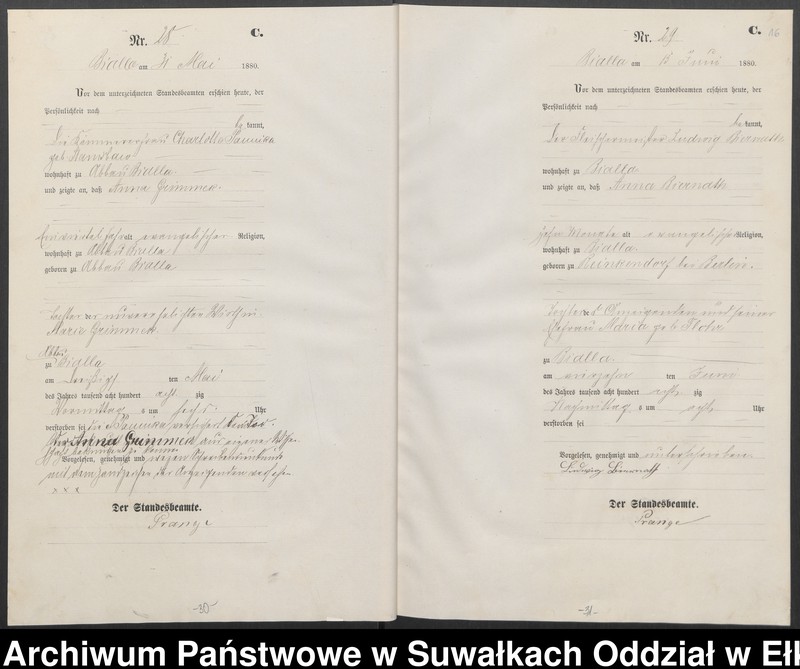 Nr. 28
C.
Bialla am 31 Mai 1880.
Vor dem unterzeichneten Standesbeamten erschien heute, der
Persönlichkeit nach
bekannt,
die Charlotte
geb
wohnhaft zu Abbau Bialla
und zeigte an, daß Anna Grimmek
alt evangelischer Religion,
wohnhaft zu Abbau Bialla
geboren zu Abbau Bialla
Tochter der unverehelichten
Maria Grimmek
Abbau
zu Bialla
am dreißigsten Mai
des Jahres tausend acht hundert acht zig
Vormittags um sechs Uhr
verstorben sei
Anna Grimmek aus eigener
Vorgelesen, genehmigt und wegen
mit dem Handzeichen der Anzeigenden versehen
x x x
Der Standesbeamte.
Prange
-30-
Nr. 29
C.
Bialla am 15 Juni 1880.
Vor dem unterzeichneten Standesbeamten erschien heute, der
Persönlichkeit nach
bekannt,
der Fleischermeister Ludwig Biernath
wohnhaft zu Bialla
und zeigte an, daß Anna Biernath
zehn Monate alt evangelischer Religion,
wohnhaft zu Bialla
geboren zu Reinkendorf bei Berlin.
Tochter des Anzeigenden und seiner
Ehefrau Maria geb
zu Bialla
am vierzehn ten Juni
des Jahres tausend acht hundert acht zig
Nachmittags um acht Uhr
verstorben sei
Vorgelesen, genehmigt und unterschrieben
Ludwig Biernath
Der Standesbeamte.
Prange
-31-
Archiwum Państwowe w Suwałkach Oddział w Eł